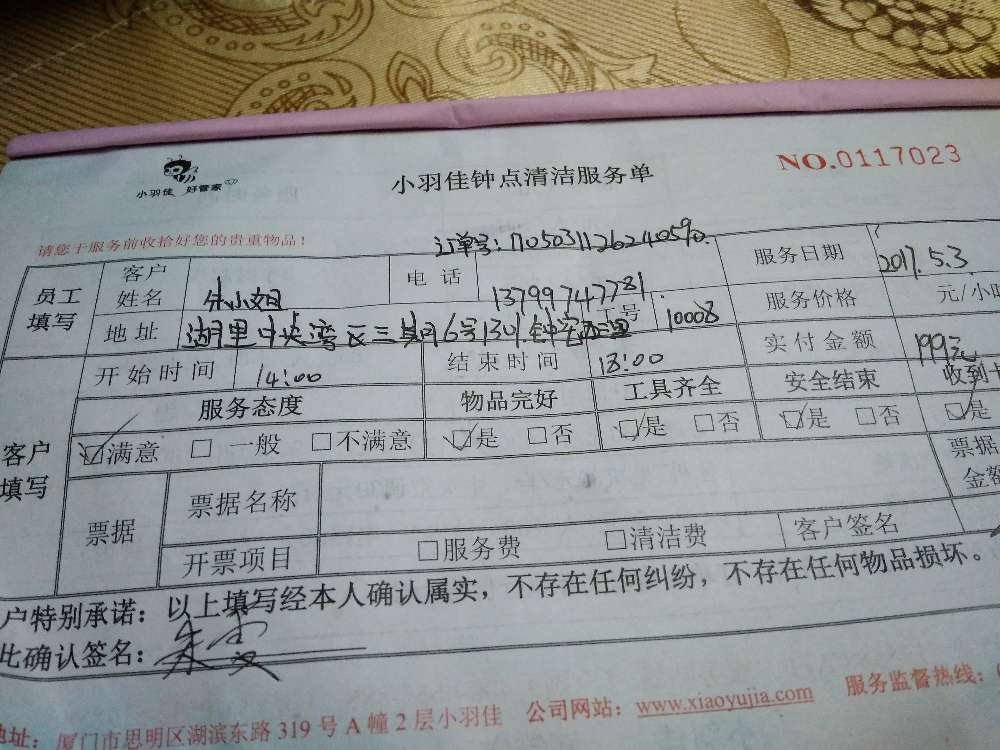 小羽佳 好管家
小羽佳钟点清洁服务单
NO.0117023
请您于服务前收拾好您的贵重物品！
订单号：1705031126240590
员工填写
客户姓名 朱小姐 电话 13799747781 服务日期 2017.5.3
地址 湖里中央湾区三期6号1301 工号 10008 服务价格 元/小
开始时间 14:00 结束时间 18:00 实付金额 199元
客户填写
服务态度 物品完好 工具齐全 安全结束 收到
☑满意 □一般 □不满意 ☑是 □否 ☑是 □否 ☑是 □否 ☑是
票据 票据名称 票据金额
开票项目 □服务费 □清洁费 客户签名
户特别承诺：以上填写经本人确认属实，不存在任何纠纷，不存在任何物品损坏。
此确认签名：
地址：厦门市思明区湖滨东路319号A幢2层小羽佳 公司网站：www.xiaoyujia.com 服务监督热线：